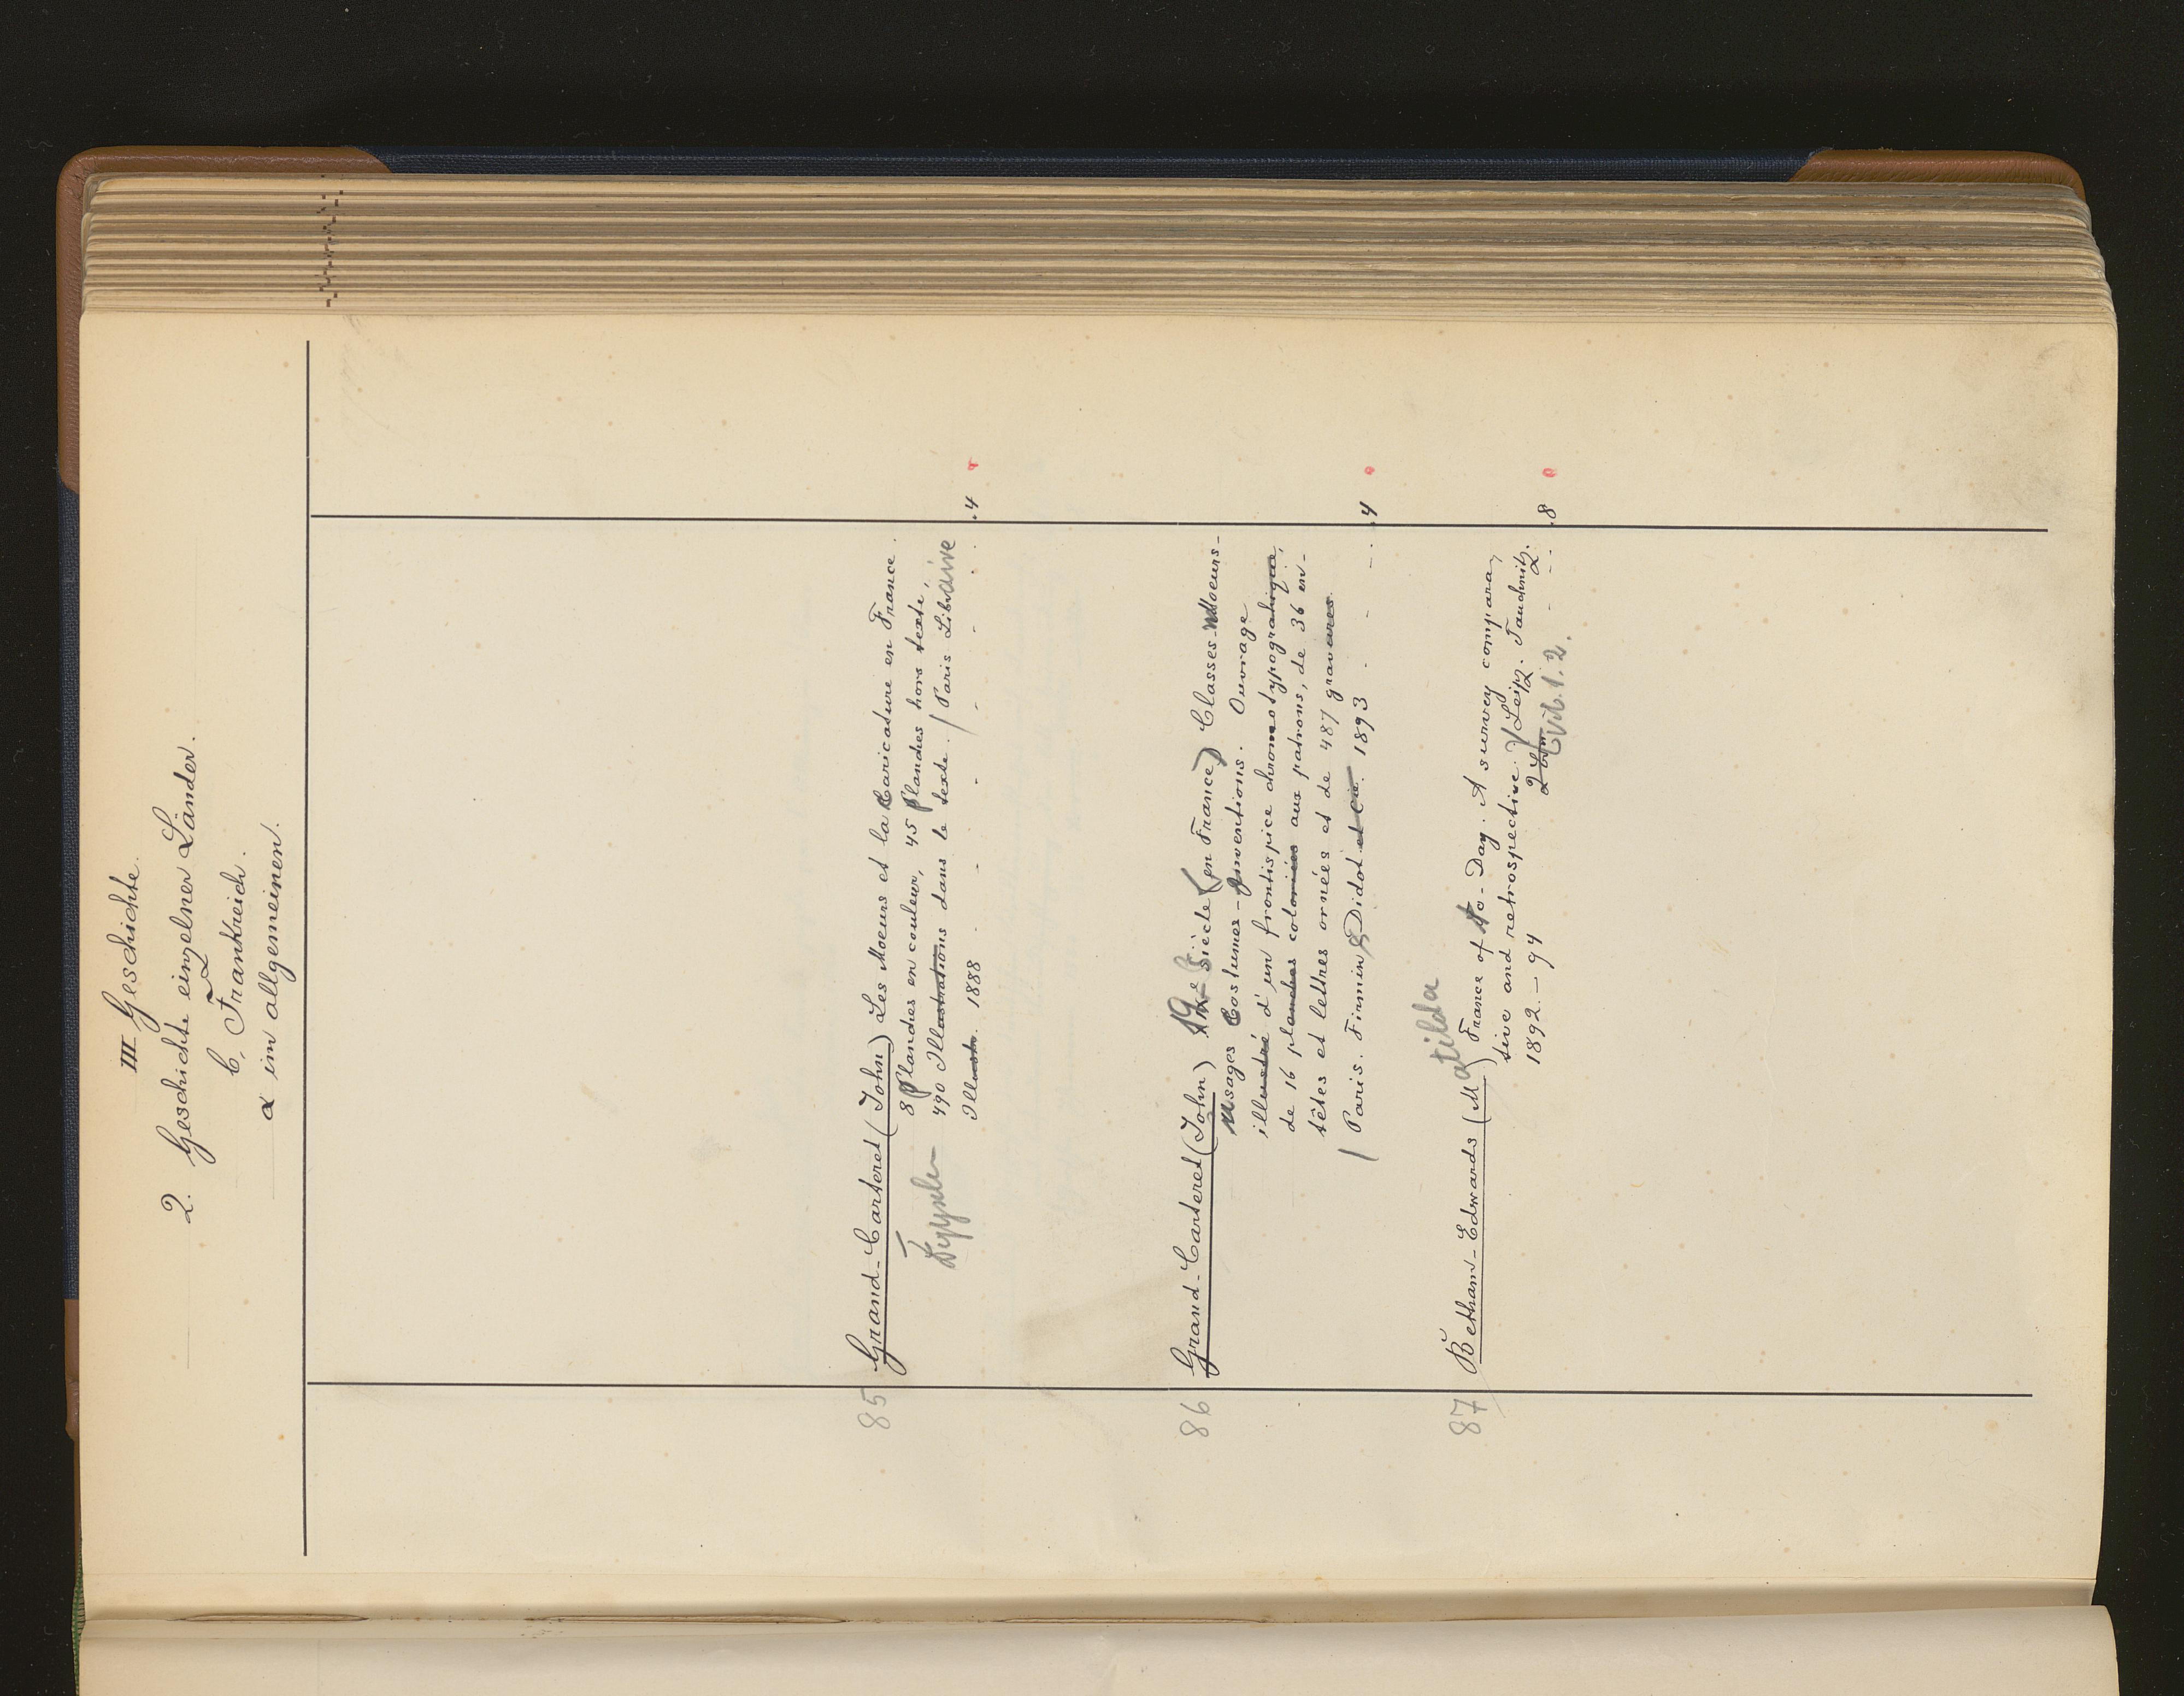 III Geschichte.
2. Geschichte einzelner Länder.
C, Frankreich.
α im allgemeinen.
85 Grand-Carteret (John) Les Moeurs et la Caricature en France.
8 planches en couleur, 45 planches hors texte,
490 Illustrations dans le texte. / Paris Librairie
Illustr. 1888 . - . - . - . . .4
86 Grand-Carteret (John) 19e Siècle (en France) Classes - Moeurs -
usages Costumes - inventions. Ouvrage
illustré d'un frontispice chromotypographique,
de 16 planches coloriées aux patrons, de 36 en-
têtes et lettres ornées et de 487 gravures.
/ Paris. Firmin Didot et Cie. 1893 . - - . .4
atilda
87 Betham-Edwards (M) France of to-Day. A survey compara,
tive and retrospective. / Leipz. Tauchnitz.
1892.-94 2 Bde - - . .8
1.2.